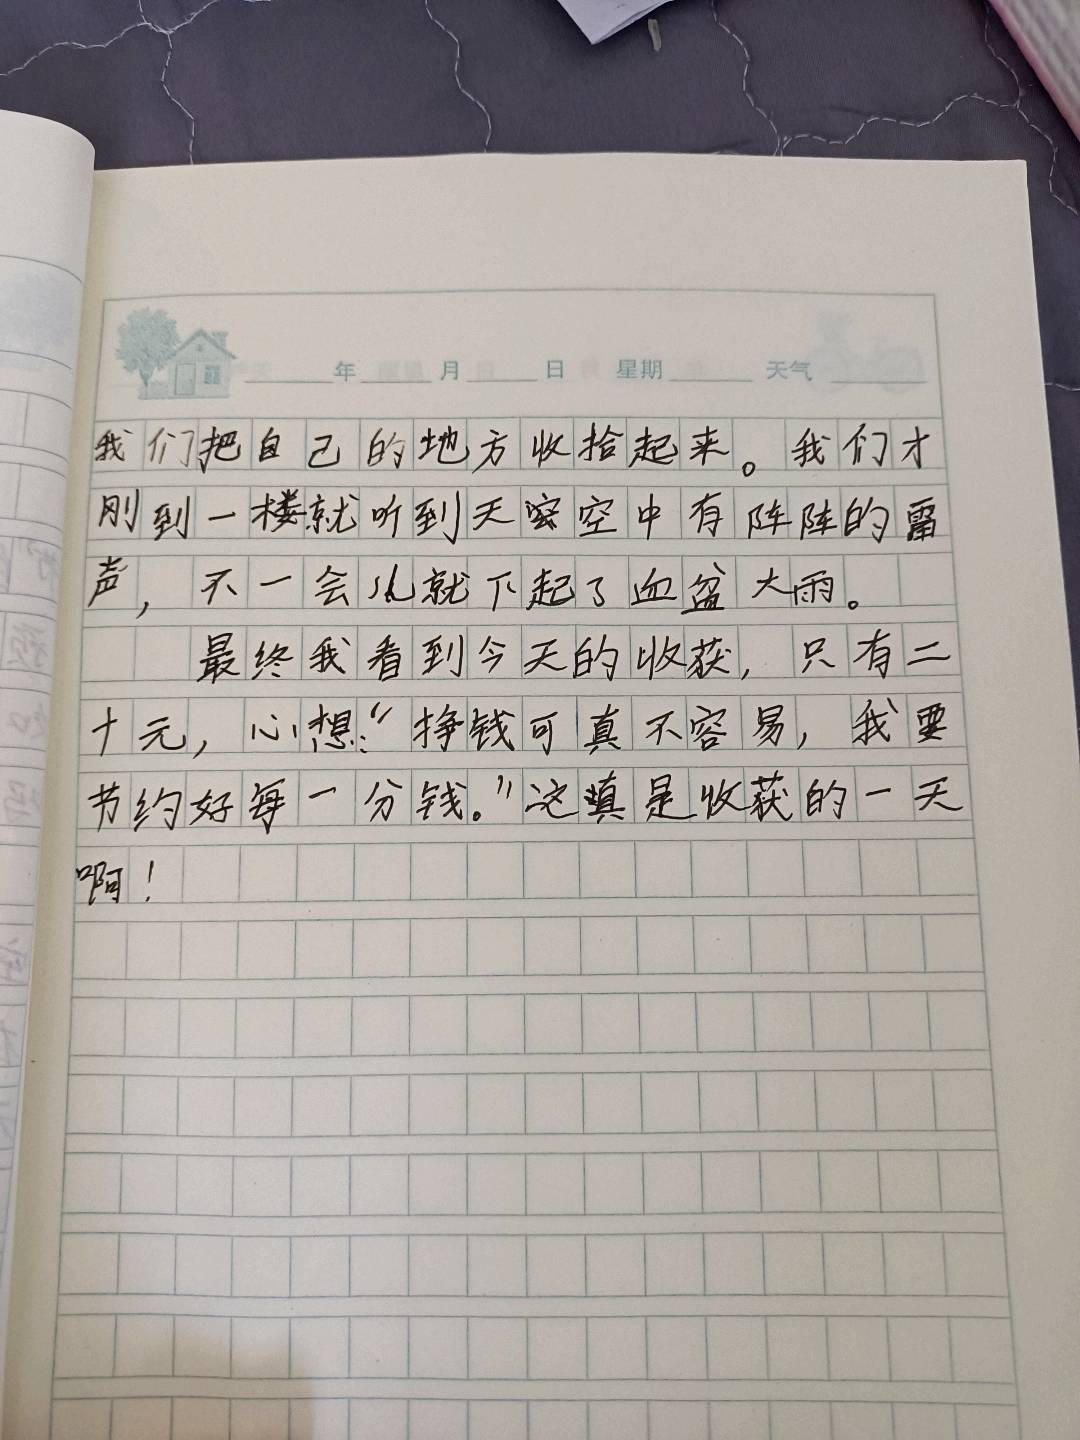 年 月 日 星期 天气
我们把自己的地方收拾起来。我们才
刚到一楼就听到天空中有阵阵的雷
声，不一会儿就下起了血盆大雨。
最终我看到今天的收获，只有二
十元，心想：“挣钱可真不容易，我要
节约好每一分钱。”这真是收获的一天
啊！